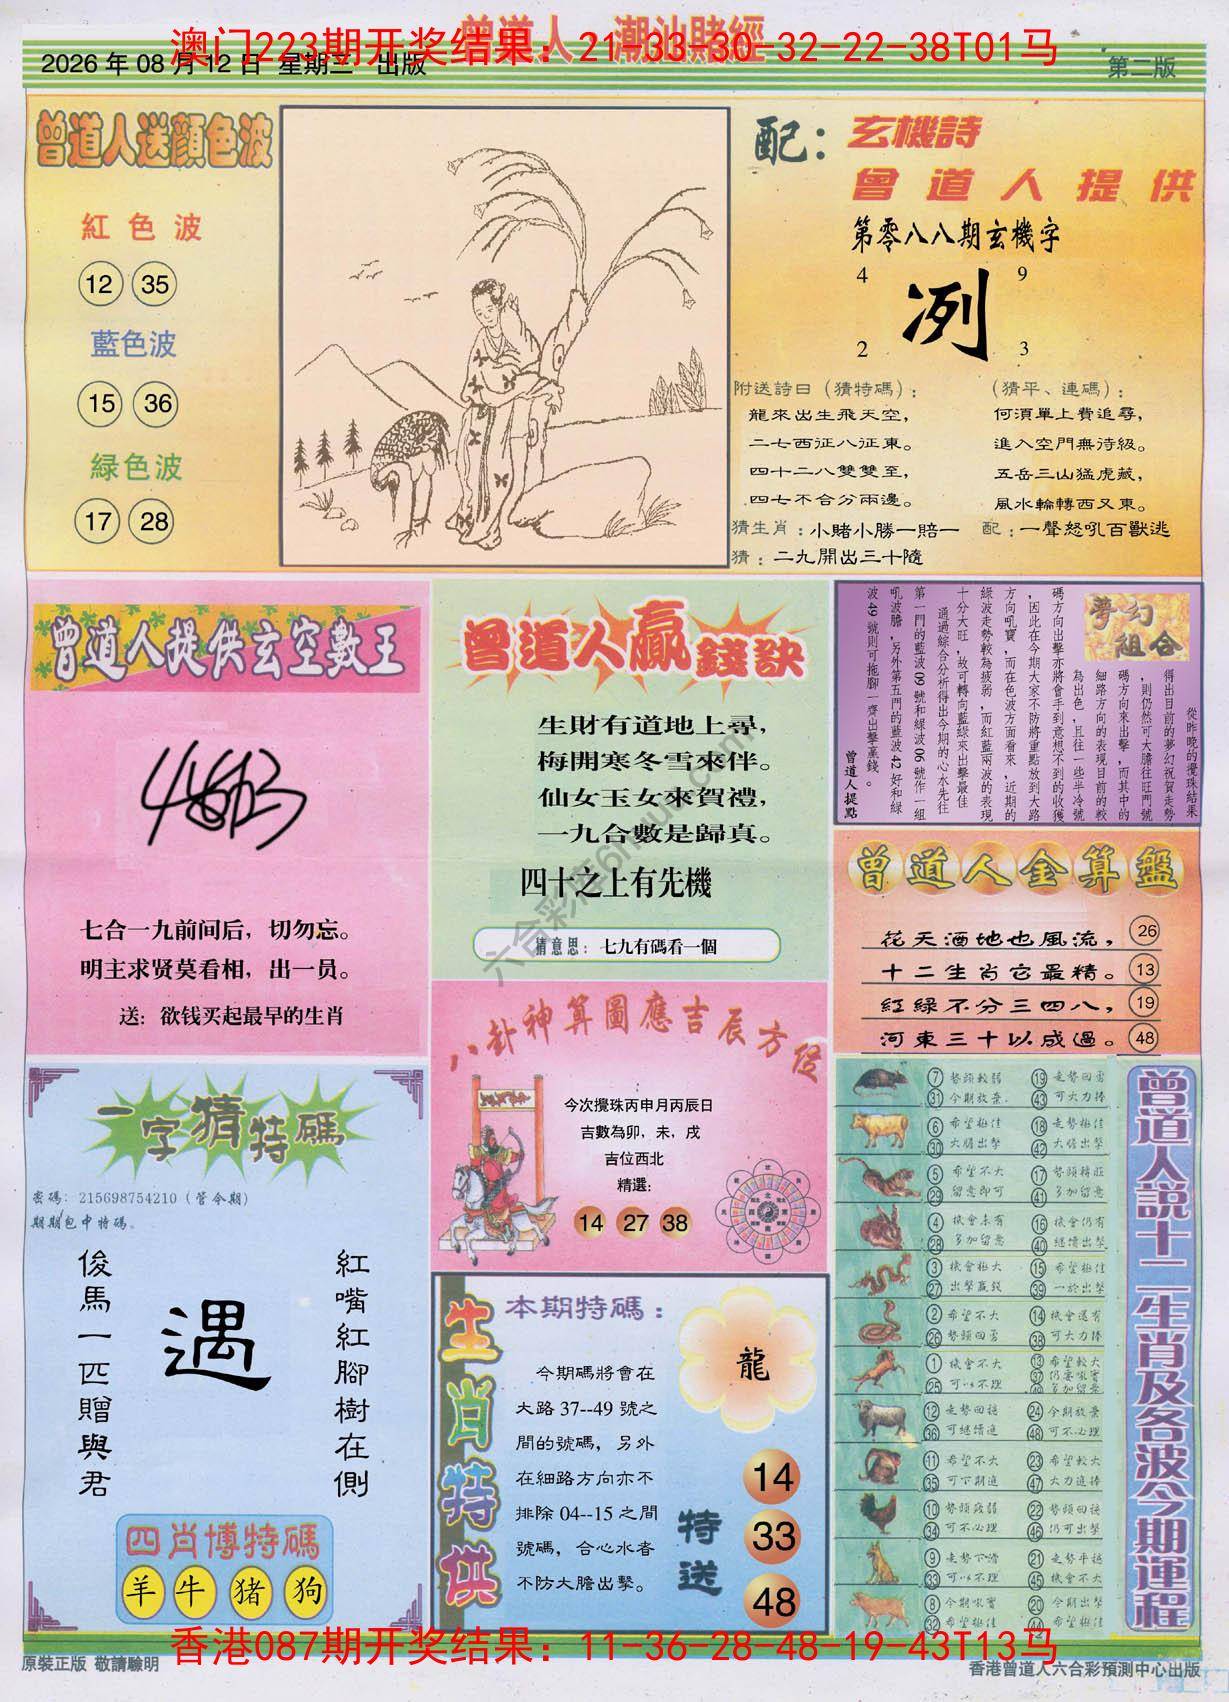 曾道人 潮汕賭經
澳门223期开奖结果：21-33-30-32-22-38T01马
2026 年 08 月 12 日 星期三 出版
第二版
曾道人送顏色波
紅色波
12 35
藍色波
15 36
緑色波
17 28
配：玄機詩
曾道人提供
第零八八期玄機字
4 9
冽
2 3
附送詩曰（猜特碼）：
龍來出生飛天空，
二七西征八征東。
四十二八雙雙至，
四七不合分兩邊。
（猜平、連碼）：
何須單上費追尋，
進入空門無待級。
五岳三山猛虎藏，
風水輪轉西又東。
猜生肖：小賭小勝一賠一
配：一聲怒吼百獸逃
猜：二九開出三十隨
曾道人提供玄空數王
七合一九前间后，切勿忘。
明主求贤莫看相，出一员。
送：欲钱买起最早的生肖
曾道人贏錢訣
生財有道地上尋，
梅開寒冬雪來伴。
仙女玉女來賀禮，
一九合數是歸真。
四十之上有先機
猜意思：七九有碼看一個
夢幻組合
從昨晚的攪珠結果
得出目前的夢幻祝賀走勢
，則仍然可大膽往旺門號
碼方向來出擊，而其中的
細路方向的表現目前的較
為出色，且往一些半冷號
碼方向出擊亦將會手到意想不到的收獲
，因此在今期大家不防將重點放到大路
方向吼寶，而在色波方面看來，近期的
綠波走勢較為疲弱，而紅藍兩波的表現
十分大旺，故可轉向藍綠來出擊最佳
通過綜合分析得出今期的心水先往
第一門的藍波09號和綠波06號作一組
吼波膽，另外第五門的藍波42好和綠
波49號則可拖腳一齊出擊贏錢。
曾道人提點
曾道人金算盤
花天酒地也風流， 26
十二生肖它最精。 13
紅綠不分三四八， 19
河東三十以成過。 48
八卦神算圖應吉辰方位
今次攪珠丙申月丙辰日
吉數為卯，未，戌
吉位西北
精選：
14 27 38
一字猜特碼
密碼：215698754210（管令期）
期期包中特碼。
紅嘴紅腳樹在側
遇
俊馬一匹贈與君
四肖博特碼
羊 牛 猪 狗
生肖特供
本期特碼：
龍
今期碼將會在
大路 37--49 號之
間的號碼，另外
在細路方向亦不
排除 04--15 之間
號碼，合心水者
不防大膽出擊。
特送
14
33
48
曾道人説十二生肖及各波今期運程
7 勢頭較弱 19 走勢回勇
31 今期放棄 43 可大力捧
6 希望極佳 18 走勢極佳
30 大膽出擊 42 大膽出擊
5 希望不大 17 勢頭精旺
29 留意即可 41 多加留意
4 機會未有 16 機會仍有
28 多加留意 40 繼續出擊
3 機會極大 15 希望極佳
27 出擊贏錢 39 一於出擊
2 希望不大 14 機會還有
26 勢頭回勇 38 可大力捧
1 機會不大 13 希望較大
25 可以不理 37
12 走勢回穩 24 今期放棄
36 可繼續追 48 可不必理
11 希望不大 23 希望較大
35 可下期追 47 大力追捧
10 勢頭疲弱 22 勢頭回穩
34 可不必理 46 仍可出擊
9 走勢下滑 21 走勢平穩
33 可以不理 45 機會不大
8 今期吼寶 20 今期出擊
32 希望極佳 44 希望極佳
香港087期开奖结果：11-36-28-48-19-43T13马
原裝正版 敬請驗明
香港曾道人六合彩預測中心出版